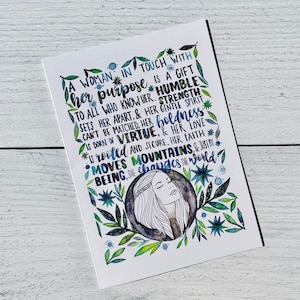 A WOMAN IN TOUCH WITH
her purpose IS A GIFT
TO ALL WHO KNOW HER. HUMBLE
STRENGTH
SETS HER APART, & HER GENTLE SPIRIT
CAN'T BE MATCHED. HER boldness
IS DRAWN IN VIRTUE, & HER LOVE
IS rooted AND SECURE. HER FAITH
MOVES MOUNTAINS, & JUST
BEING, SHE changes the world